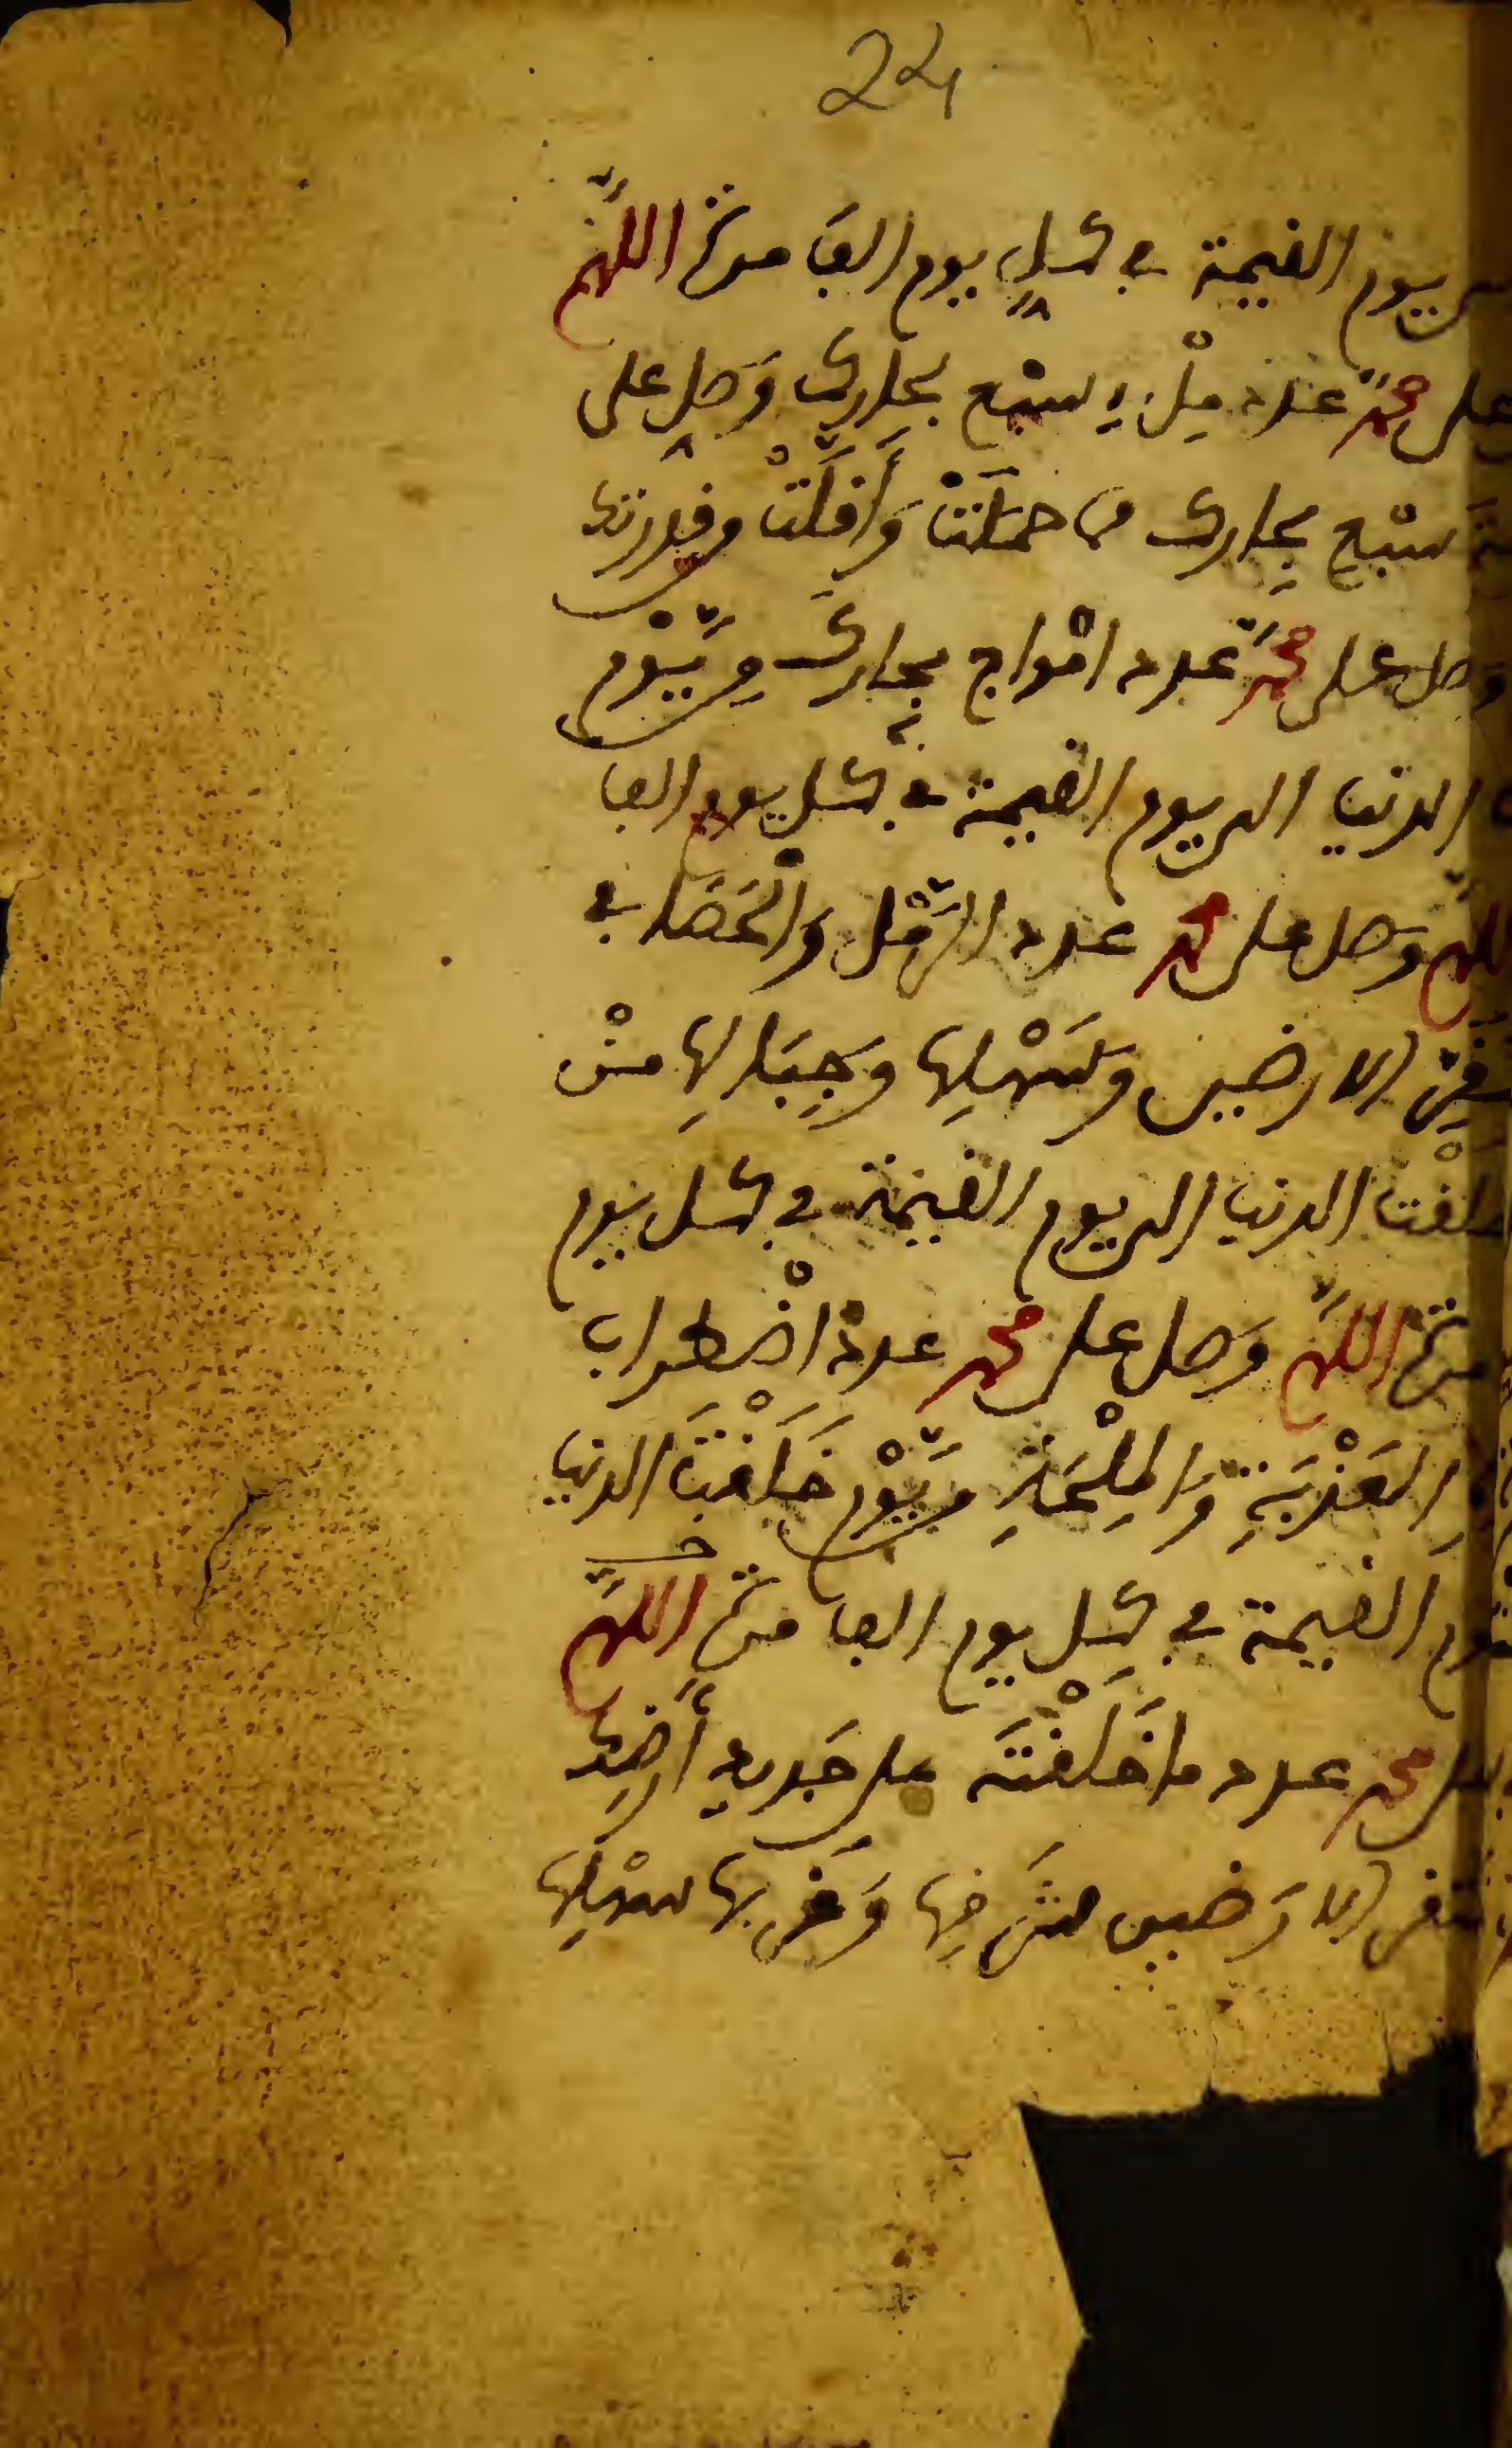 24
يوم القيمة في كل يوم الف مرة اللهم
على محمد عدد ملء سبع بحارك وصل على
سبع بحارك مما حملت وأقلت من قدرتك
وصل على محمد عدد امواج بحارك من يوم
الدنيا الى يوم القيمة في كل يوم الف
وصل على محمد عدد الرمل والحصا في
الارضين وسهلها وجبالها من
خلقت الدنيا الى يوم القيمة في كل يوم
مرة اللهم وصل على محمد عدد اضطراب
العذبة والملحة من يوم خلقت الدنيا
يوم القيمة في كل يوم الف مرة اللهم
على محمد عدد ما خلقته على جديد أرضك
الارضين شرقها وغربها سهلها